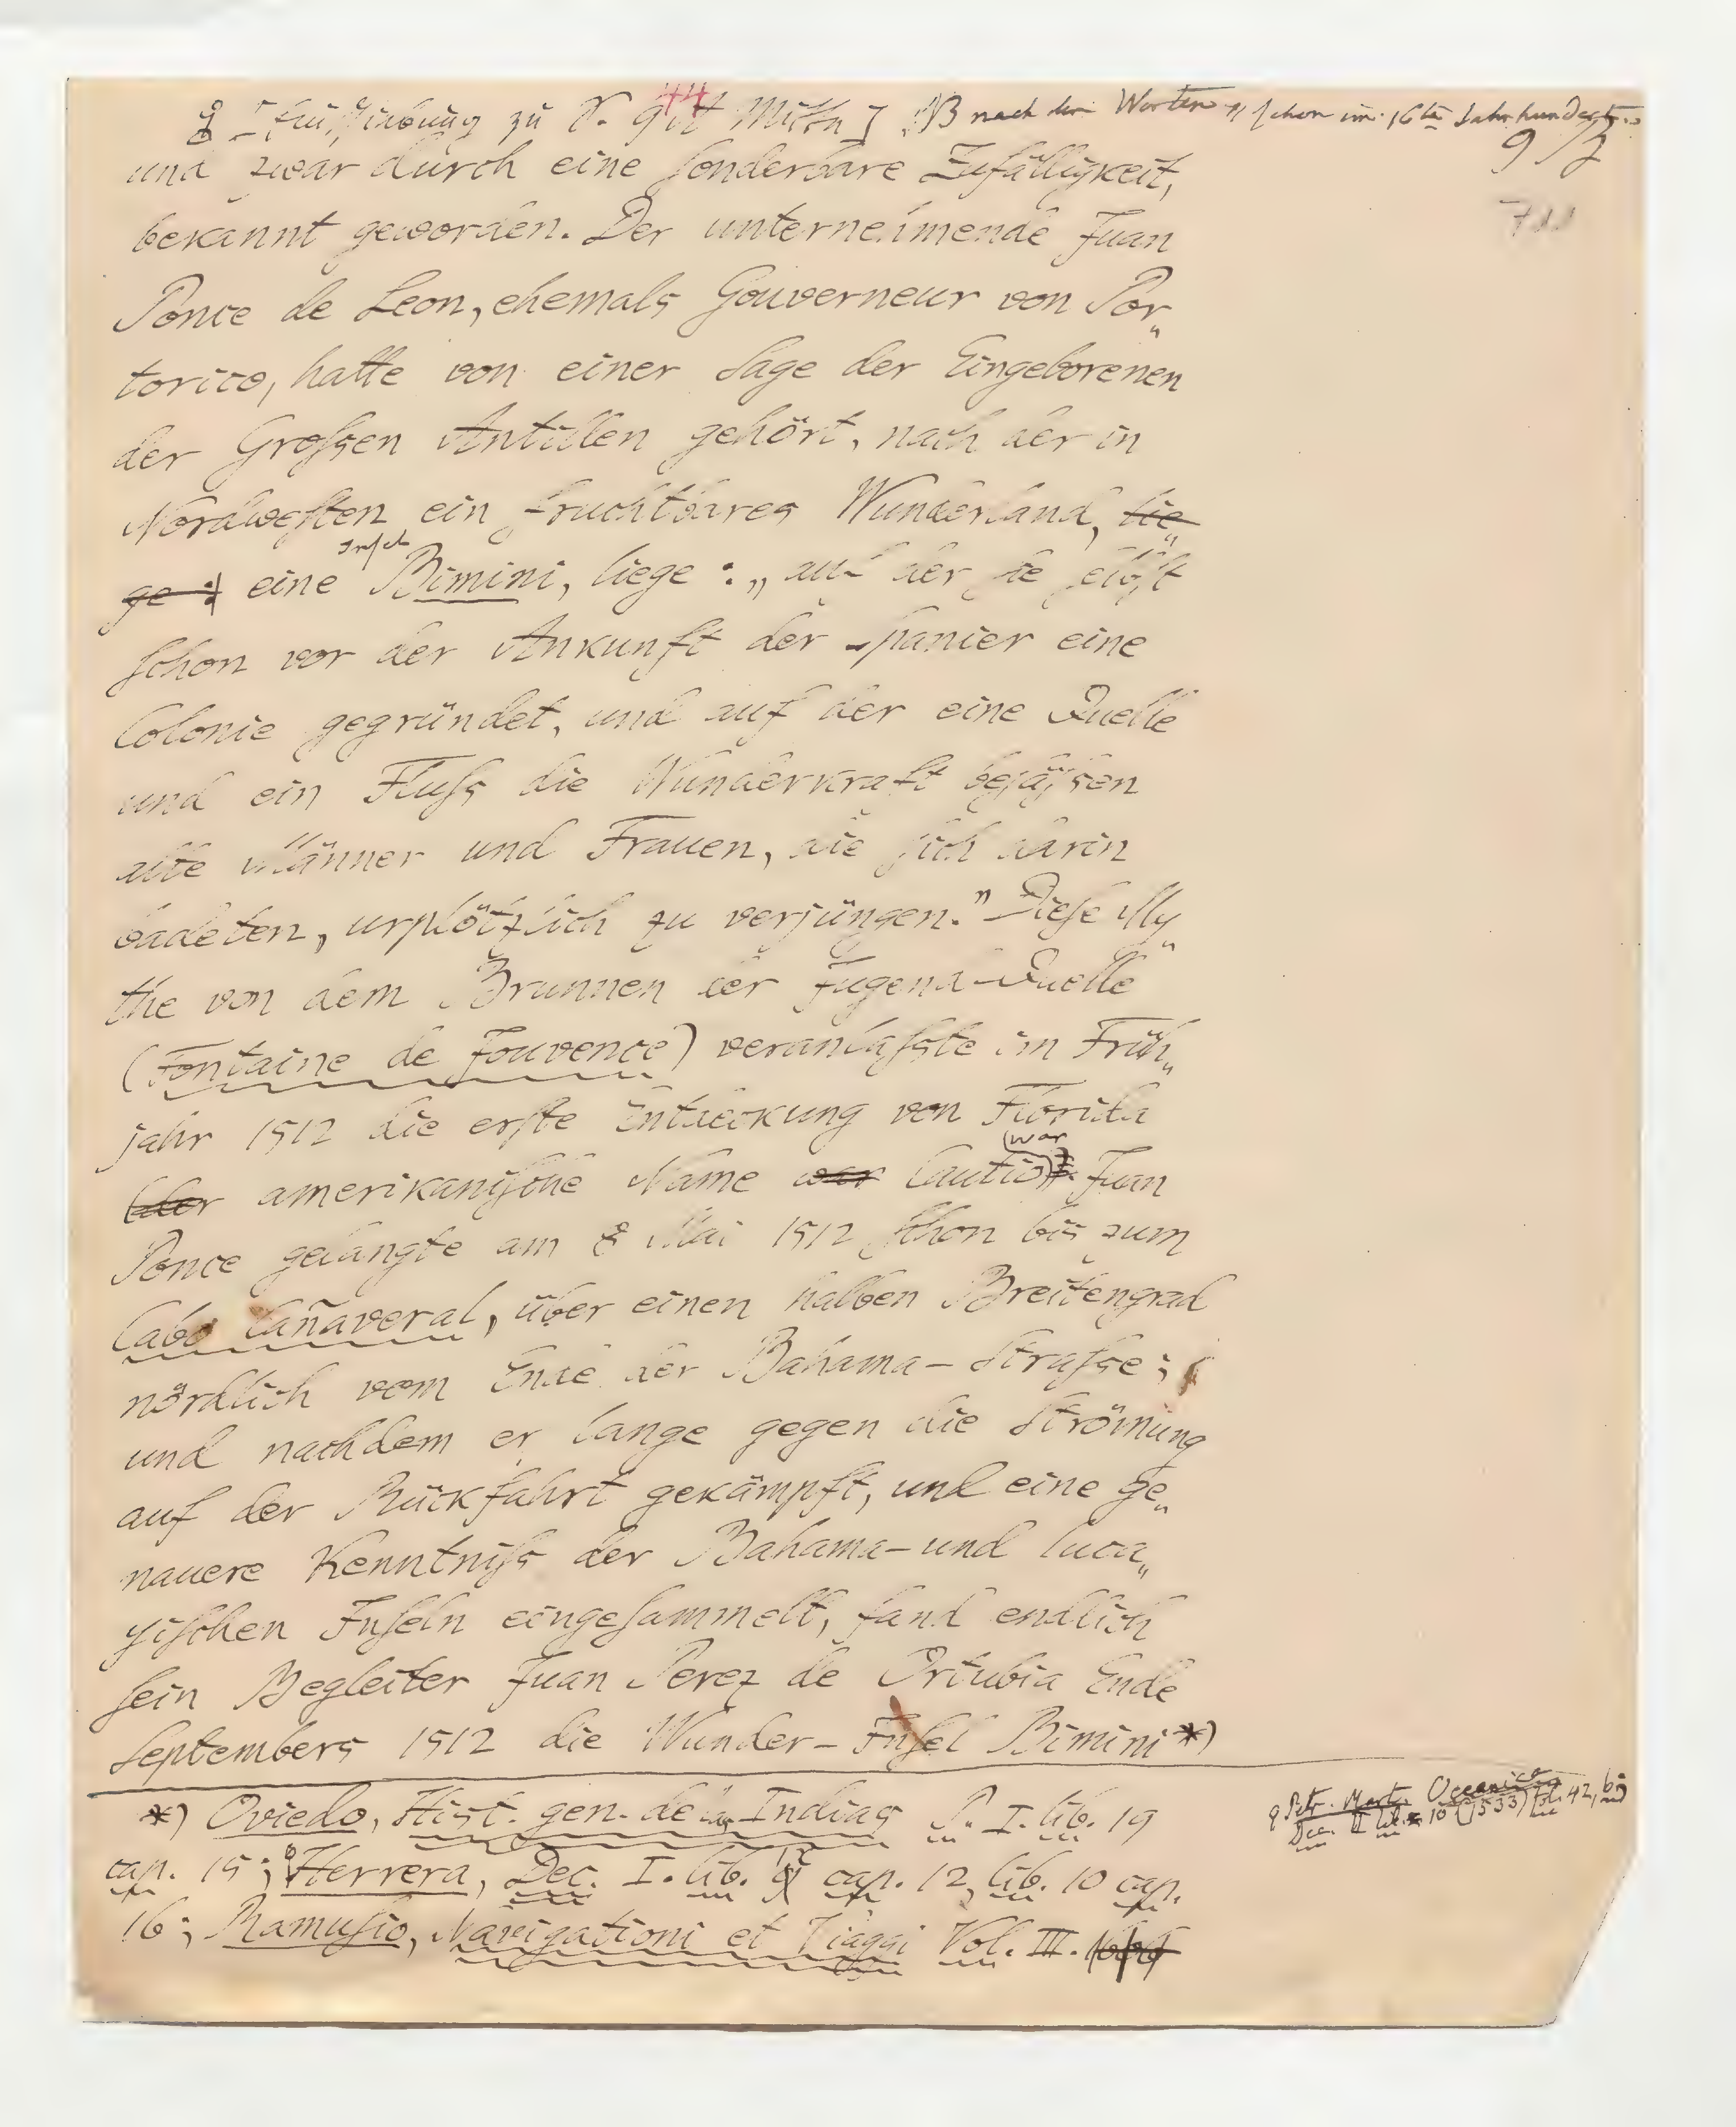 [Einschiebung zu S. 944 Mitte] NB nach den Worten „ schon im 16ten Jahrhundert
9/2
711
und zwar durch eine sonderbare Zufälligkeit,
bekannt geworden. Der unternehmende Juan
Ponce de Leon, ehemals Gouverneur von Por„
torico, hatte von einer Sage der Eingeborenen
der Grofsen Antillen gehört, nach der in
Nordwesten ein fruchtbares Wunderland, lie„
Insel
ge : eine Bimini, liege : „auf der sie selbst
schon vor der Ankunft der Spanier eine
Colonie gegründet, und auf der eine Quelle
und ein Flufs die Wunderkraft besäfsen
alte Männer und Frauen, die sich darin
badeten, urplötzlich zu verjüngen.” Diese My„
the von dem Brunnen der Jugend-Quelle
(Fontaine de Jouvence) veranlafste im Früh„
jahr 1512 die erste Entdeckung von Florida
(war
(der amerikanische Name war Cautio). Juan
Ponce gelangte am 8 Mai 1512 schon bis zum
Cabo Cañaveral, über einen halben Breitengrad
nördlich vom Ende der Bahama-Strafse;
und nachdem er lange gegen die Strömung
auf der Rückfahrt gekämpft, und eine ge„
nauere Kenntnifs der Bahama- und luca„
yischen Inseln eingesammelt, fand endlich
sein Begleiter Juan Perez de Ortubia Ende
Septembers 1512 die Wunder-Insel Bimini *)
*) Oviedo, Hist. gen. de las Indias P. I. lib. 19
cap. 15; Herrera, Dec. I. lib. 9 cap. 12, lib. 10 cap.
16; Ramusio, Navigationi et Viaggi Vol. III.
Petr. Mart. Oceanica
Dec. II lib. 10 (1533) fol. 42, b;